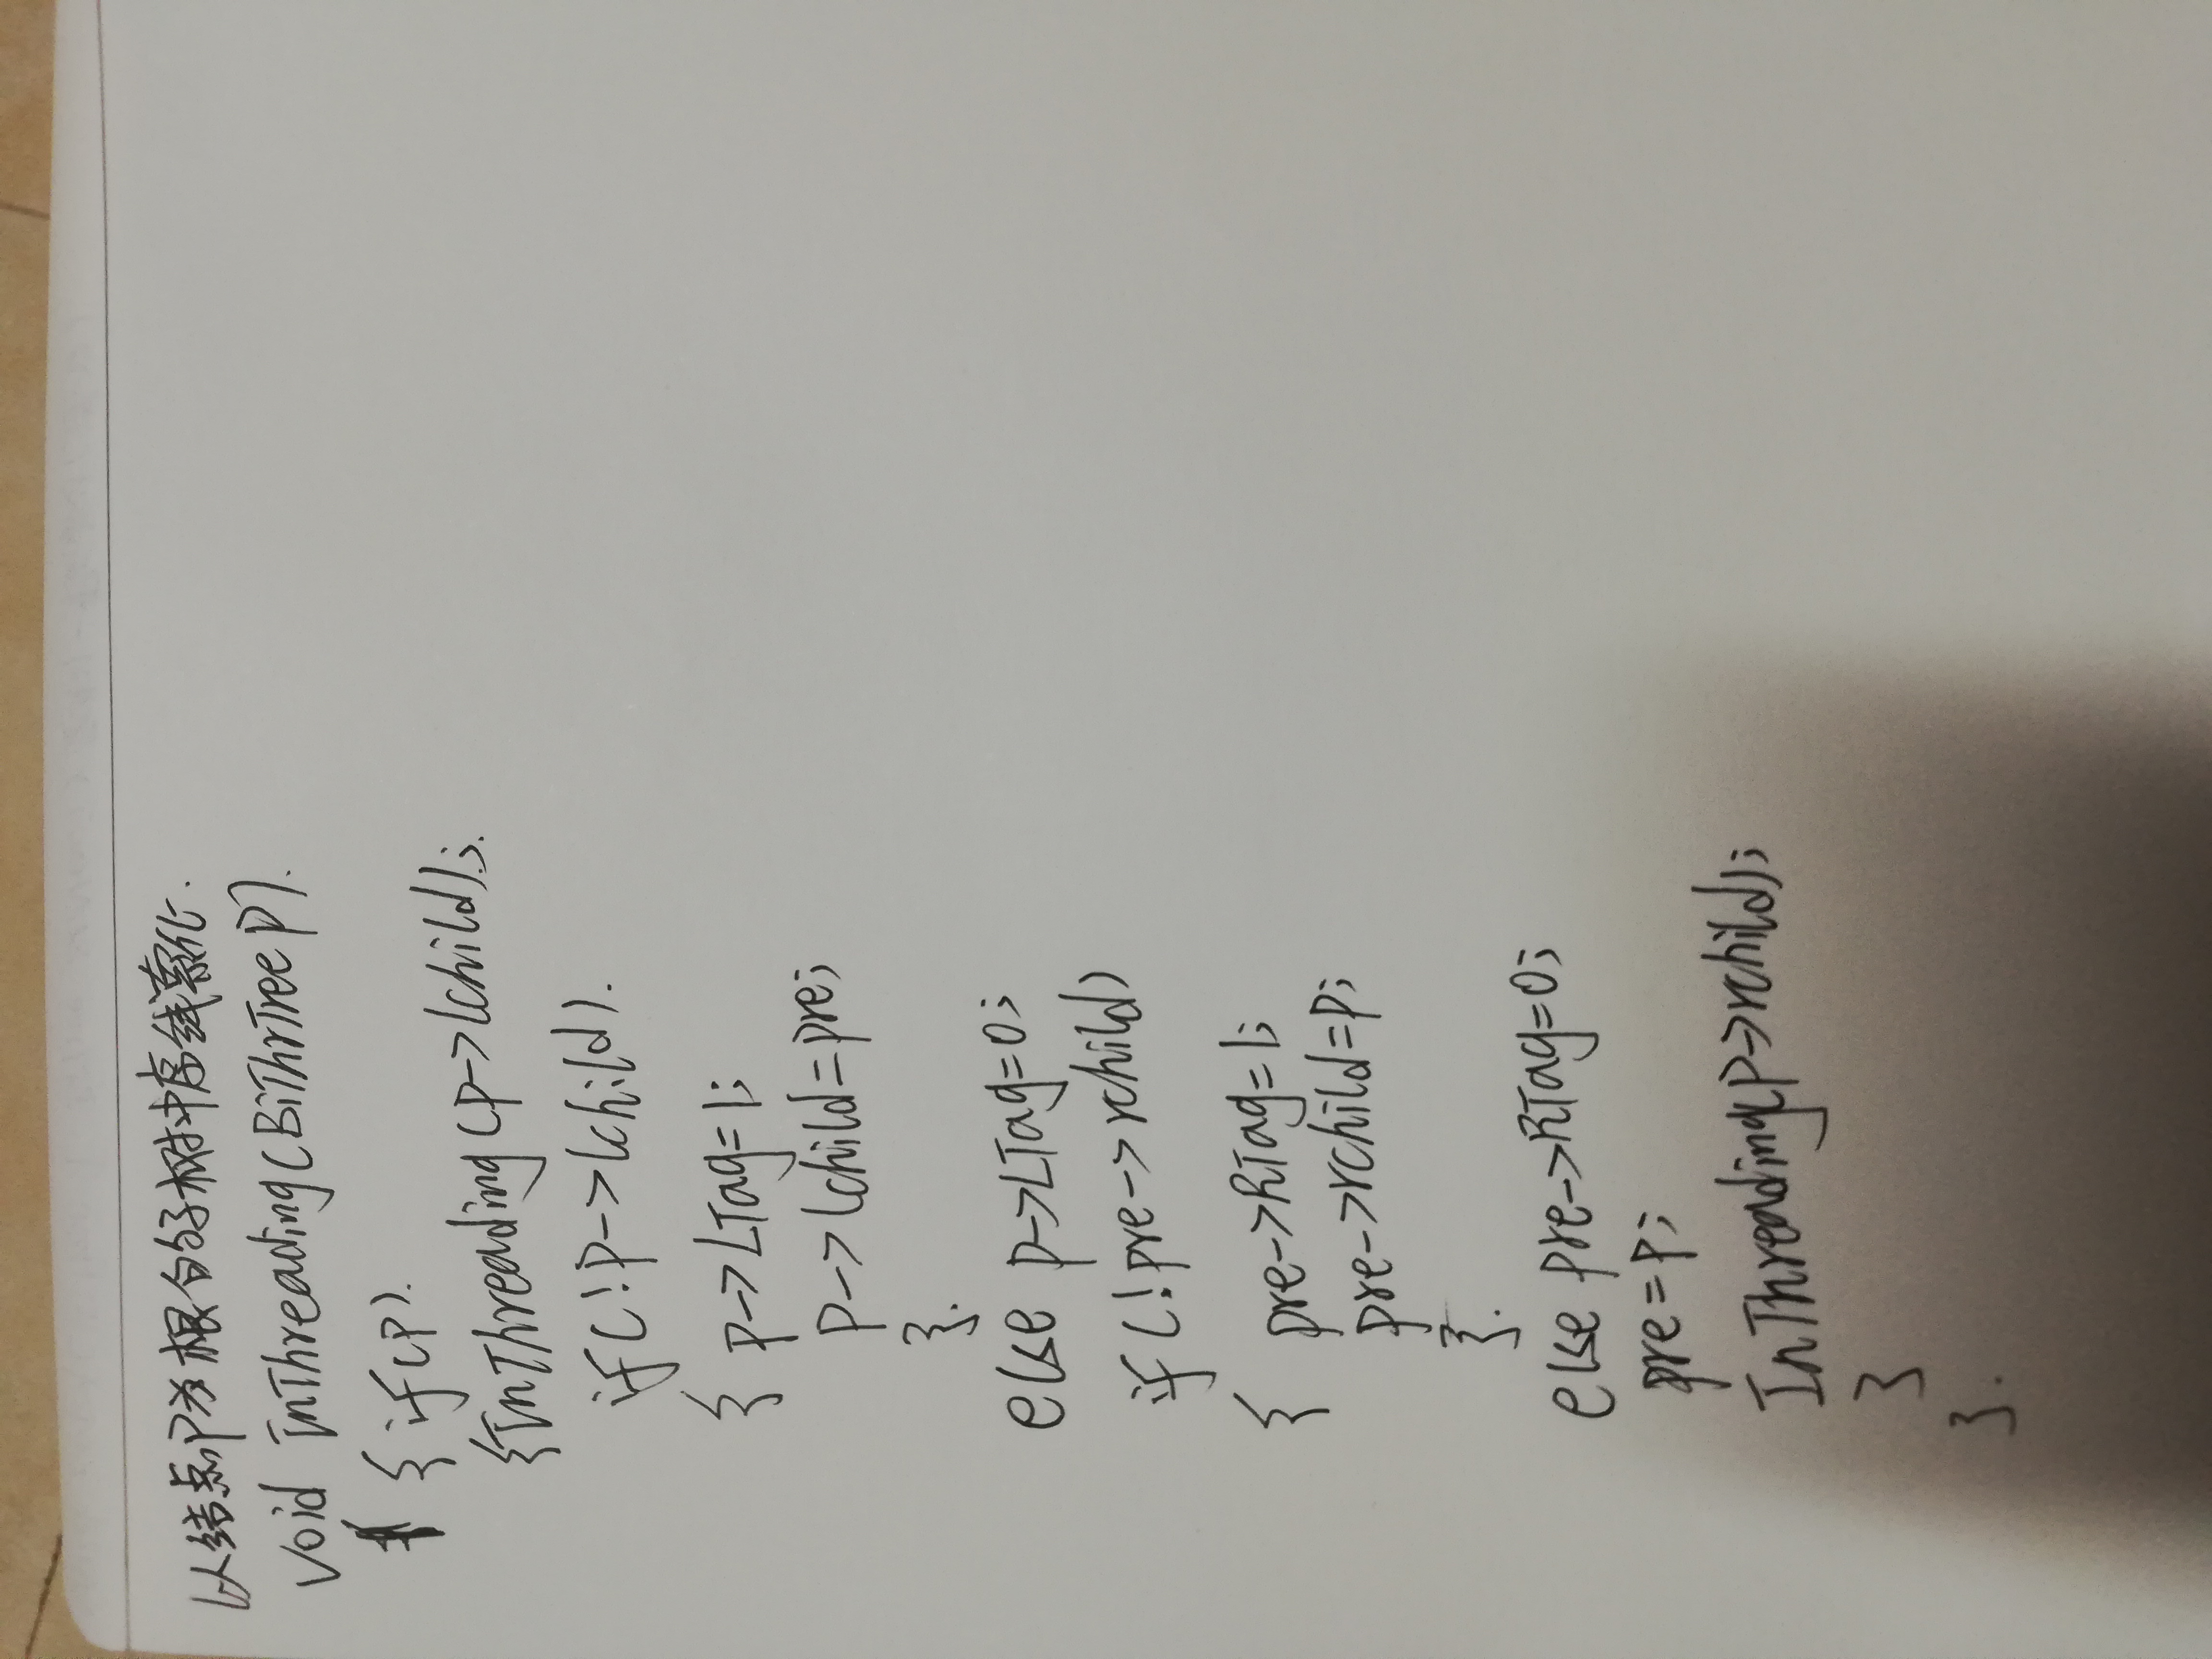 以结点P为根的子树中序线索化.
void InThreading(BiThrTree P).
{ if(P).
{InThreading(P->lchild);.
if(!P->lchild).
{ P->LTag=1;
P->lchild=pre;
}.
else P->LTag=0;
if(!pre->rchild)
{ pre->RTag=1;
pre->rchild=P;
}.
else pre->RTag=0;
pre=P;
InThreading(P->rchild);
}
}.